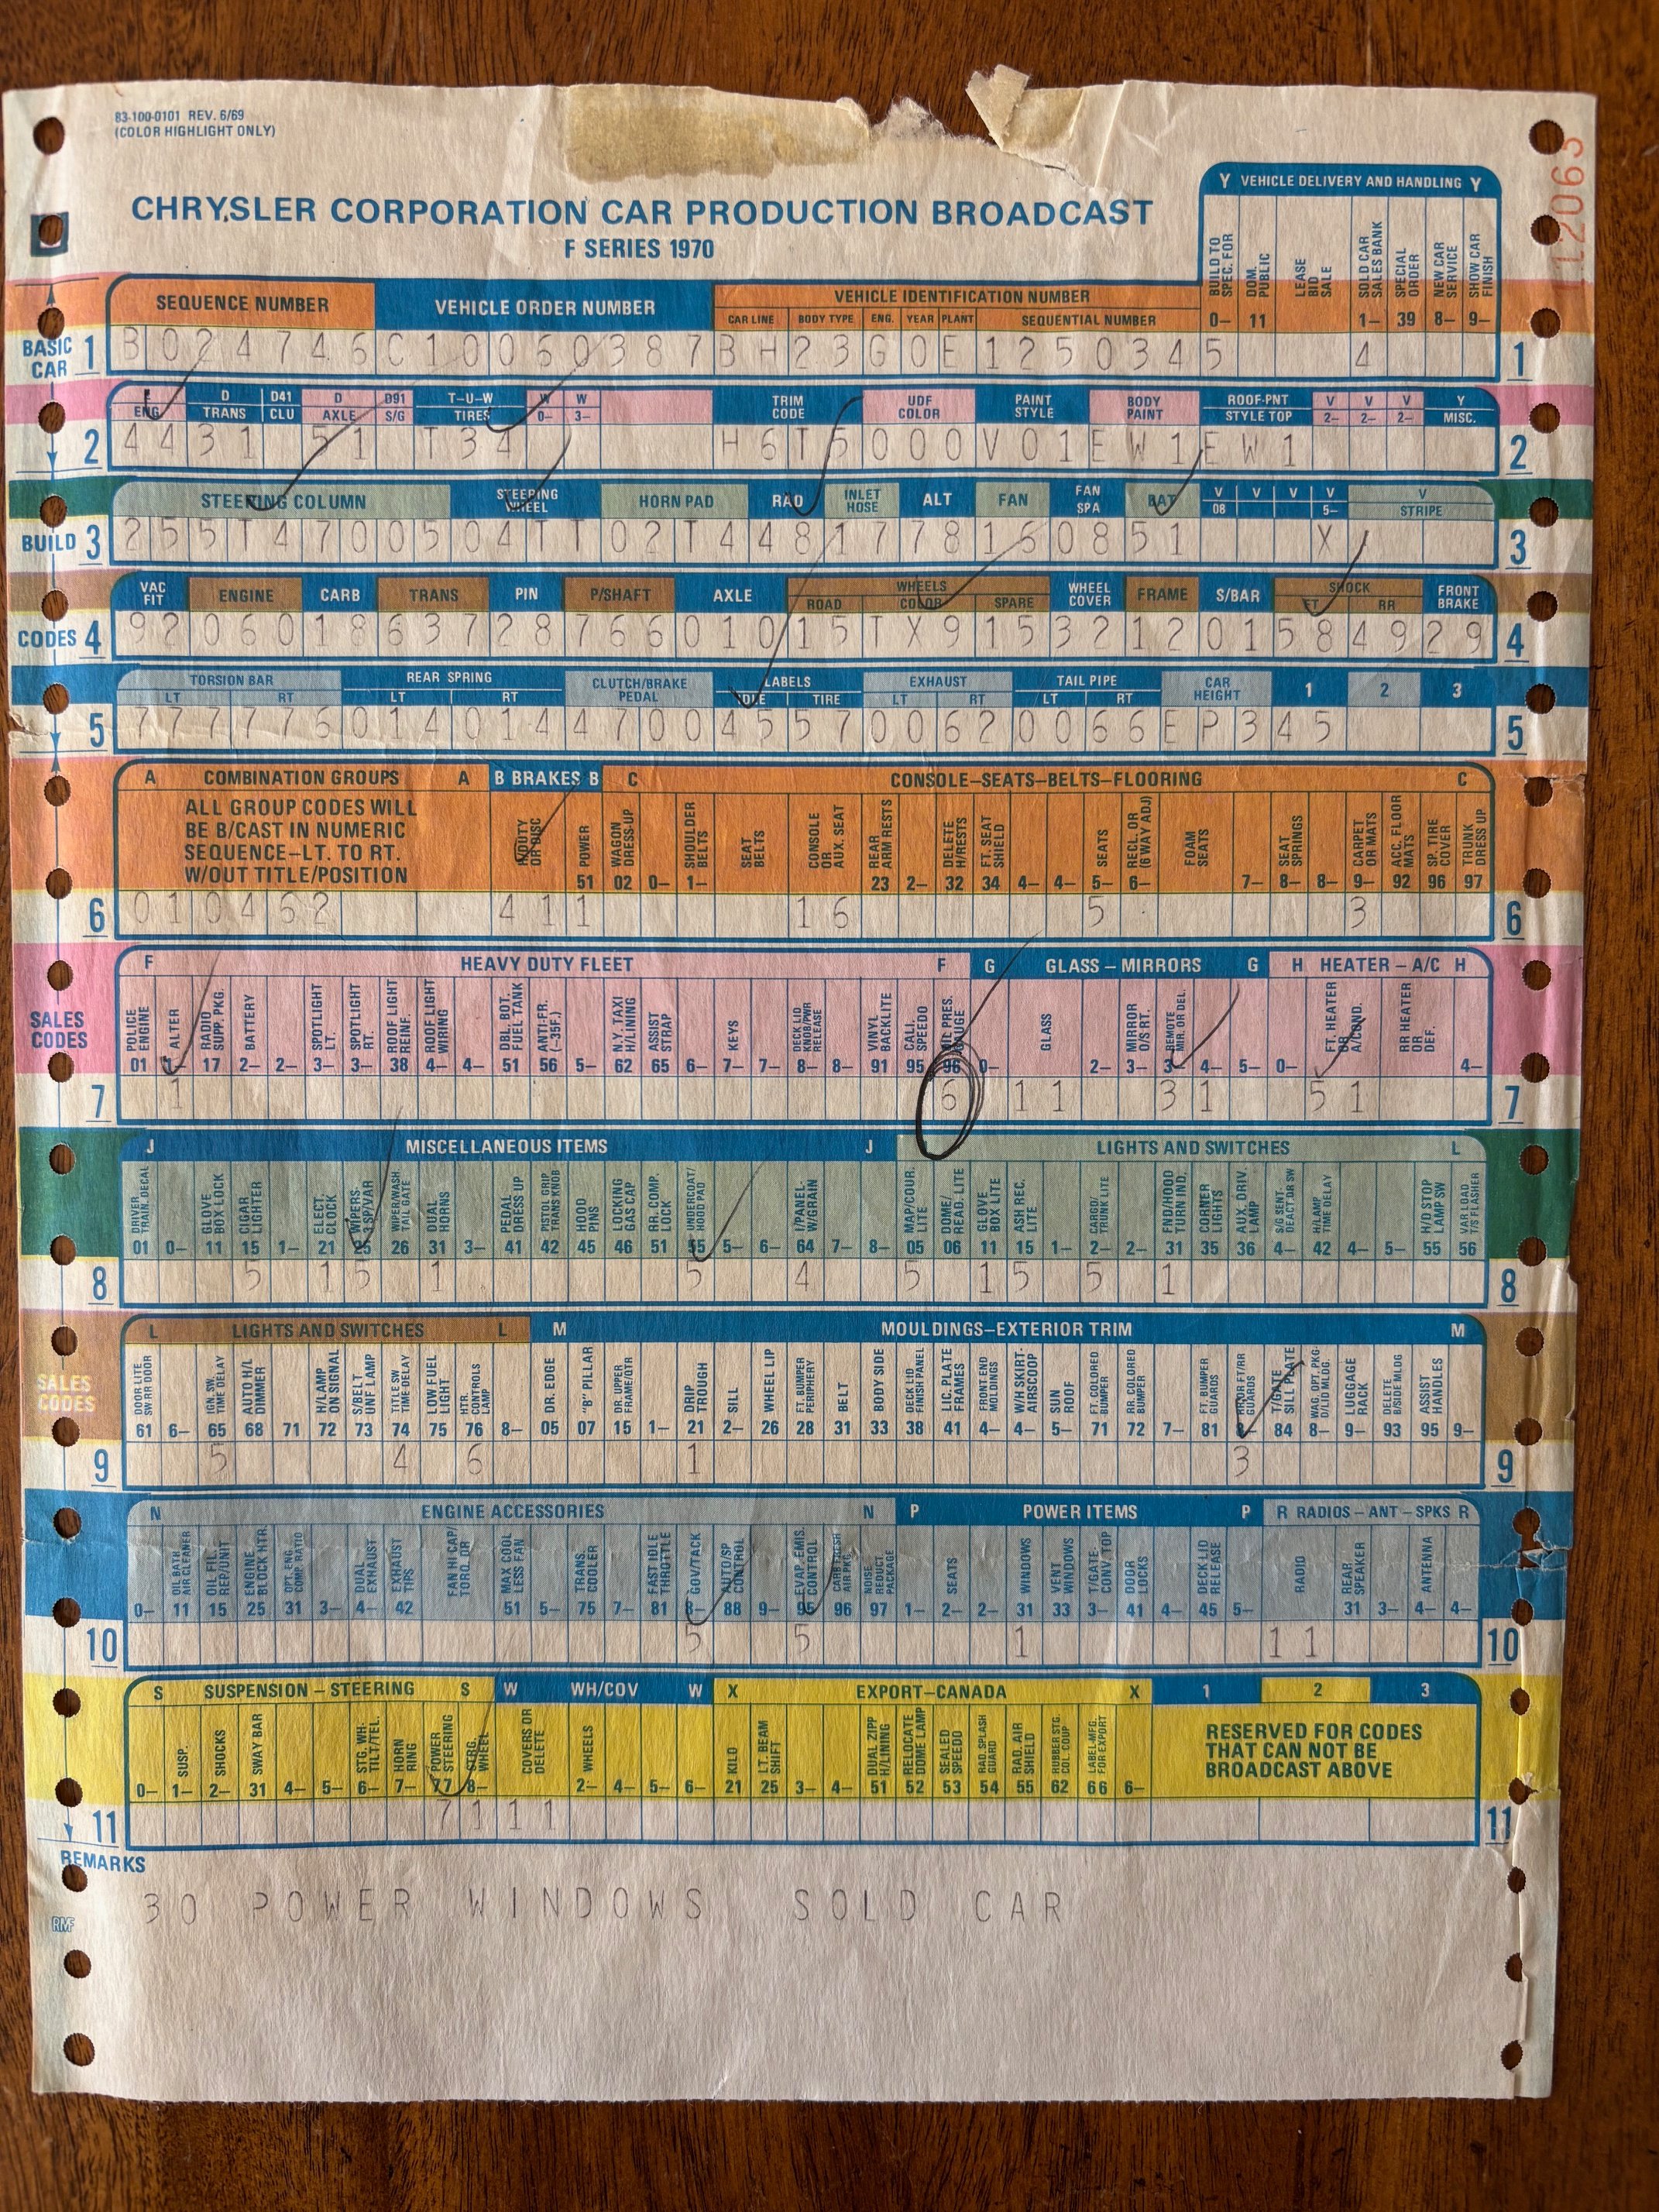 83-100-0101 REV. 6/69
(COLOR HIGHLIGHT ONLY)
L20635
CHRYSLER CORPORATION CAR PRODUCTION BROADCAST
F SERIES 1970
Y VEHICLE DELIVERY AND HANDLING Y
BUILD TO SPEC. FOR DOM. PUBLIC LEASE BID SALE SOLD CAR SALES BANK SPECIAL ORDER NEW CAR SERVICE SHOW CAR FINISH
0– 11 1– 39 8– 9–
SEQUENCE NUMBER VEHICLE ORDER NUMBER VEHICLE IDENTIFICATION NUMBER
CAR LINE BODY TYPE ENG. YEAR PLANT SEQUENTIAL NUMBER
BASIC CAR 1 B024746 C10060387 BH23G0E125034 5 4 1
E D D41 D D91 T–U–W W W TRIM CODE UDF COLOR PAINT STYLE BODY PAINT ROOF-PNT V V V Y
ENG TRANS CLU AXLE S/G TIRES 0– 3– STYLE TOP 2– 2– 2– MISC.
2 44 31 51 T34 H6T5 000 V01 EW1 EW1 2
STEERING COLUMN STEERING WHEEL HORN PAD RAD INLET HOSE ALT FAN FAN SPA BAT V V V V V
08 5– STRIPE
BUILD 3 255T47005 04TT 02T 448 17 78 16 08 51 X 3
VAC FIT ENGINE CARB TRANS PIN P/SHAFT AXLE WHEELS WHEEL COVER FRAME S/BAR SHOCK FRONT BRAKE
ROAD COLOR SPARE FT RR
CODES 4 92 060 18 637 28 766 010 15 TX9 15 32 12 01 58 49 29 4
TORSION BAR REAR SPRING CLUTCH/BRAKE PEDAL LABELS EXHAUST TAIL PIPE CAR HEIGHT 1 2 3
LT RT LT RT IDLE TIRE LT RT LT RT
5 777 776 014 014 4700 45 57 00 62 00 66 EP3 45 5
A COMBINATION GROUPS A B BRAKES B C CONSOLE–SEATS–BELTS–FLOORING C
ALL GROUP CODES WILL
BE B/CAST IN NUMERIC
SEQUENCE–LT. TO RT.
W/OUT TITLE/POSITION
H/DUTY OR DISC POWER WAGON DRESS-UP SHOULDER BELTS SEAT BELTS CONSOLE OR AUX. SEAT REAR ARM RESTS DELETE H/RESTS FT. SEAT SHIELD SEATS RECL. OR (6 WAY ADJ) FOAM SEATS SEAT SPRINGS CARPET OR MATS ACC. FLOOR MATS SP. TIRE COVER TRUNK DRESS UP
51 02 0– 1– 23 2– 32 34 4– 4– 5– 6– 7– 8– 8– 9– 92 96 97
6 010462 41 1 16 5 3 6
F HEAVY DUTY FLEET F G GLASS – MIRRORS G H HEATER – A/C H
POLICE ENGINE ALTER RADIO SUPP. PKG. BATTERY SPOTLIGHT LT. SPOTLIGHT RT. ROOF LIGHT REINF. ROOF LIGHT WIRING DBL. BOT. FUEL TANK ANTI-FR. (–35F.) N.Y. TAXI H/LINING ASSIST STRAP KEYS DECK LID KNOB/PWR RELEASE VINYL BACKLITE CALI. SPEEDO OIL PRES. GAUGE GLASS MIRROR O/S RT. REMOTE MIR. OR DEL. FT. HEATER OR A/COND. RR HEATER OR DEF.
01 1– 17 2– 2– 3– 3– 38 4– 4– 51 56 5– 62 65 6– 7– 7– 8– 8– 91 95 96 0– 2– 3– 3– 4– 5– 0– 4–
SALES CODES
7 1 6 11 3 1 51 7
J MISCELLANEOUS ITEMS J L LIGHTS AND SWITCHES L
DRIVER TRAIN. DECAL GLOVE BOX LOCK CIGAR LIGHTER ELECT. CLOCK WIPERS 3 SP/VAR WIPER/WASH TAIL GATE DUAL HORNS PEDAL DRESS UP PISTOL GRIP TRANS KNOB HOOD PINS LOCKING GAS CAP RR. COMP. LOCK UNDERCOAT/ HOOD PAD I/PANEL- W/GRAIN MAP/COUR. LITE DOME/ READ. LITE GLOVE BOX LITE ASH REC. LITE CARGO/ TRUNK LITE FND/HOOD TURN IND. CORNER LIGHTS AUX. DRIV. LAMP S/G SENT. DEACT. OR SW H/LAMP TIME DELAY H/D STOP LAMP SW VAR LOAD T/S FLASHER
01 0– 11 15 1– 21 25 26 31 3– 41 42 45 46 51 55 5– 6– 64 7– 8– 05 06 11 15 1– 2– 2– 31 35 36 4– 42 4– 5– 55 56
8 5 1 5 1 5 4 5 1 5 5 1 8
L LIGHTS AND SWITCHES L M MOULDINGS–EXTERIOR TRIM M
DOOR LITE SW RR DOOR IGN. SW. TIME DELAY AUTO H/L DIMMER H/LAMP ON SIGNAL S/BELT UNF LAMP TITLE SW TIME DELAY LOW FUEL LIGHT HTR. CONTROLS LAMP DR. EDGE "B" PILLAR DR. UPPER FRAME/QTR DRIP TROUGH SILL WHEEL LIP FT. BUMPER PERIPHERY BELT BODY SIDE DECK LID FINISH PANEL LIC. PLATE FRAMES FRONT END MOLDINGS W/H SKIRT- AIRSCOOP SUN ROOF FT. COLORED BUMPER RR. COLORED BUMPER FT. BUMPER GUARDS T/GATE SILL PLATE WAG. OPT. PKG- D/LID MLDG. LUGGAGE RACK DELETE B/SIDE MLDG ASSIST HANDLES
61 6– 65 68 71 72 73 74 75 76 8– 05 07 15 1– 21 2– 26 28 31 33 38 41 4– 4– 5– 71 72 7– 81 84 8– 9– 93 95 9–
SALES CODES
9 5 4 6 1 3 9
N ENGINE ACCESSORIES N P POWER ITEMS P R RADIOS – ANT – SPKS R
OIL BATH AIR CLEANER OIL FIL. REP/UNIT ENGINE BLOCK HTR. OPT. ENG. COMP. RATIO DUAL EXHAUST EXHAUST TIPS FAN HI CAP/ TORQ. DR MAX COOL LESS FAN TRANS. COOLER FAST IDLE THROTTLE GOV/TACK AUTO/SP CONTROL EVAP. EMIS. CONTROL CARB FRESH AIR PKG NOISE REDUCT. PACKAGE SEATS WINDOWS VENT WINDOWS T/GATE- CONV TOP DOOR LOCKS DECK LID RELEASE RADIO REAR SPEAKER ANTENNA
0– 11 15 25 31 3– 4– 42 51 5– 75 7– 81 8– 88 9– 95 96 97 1– 2– 2– 31 33 3– 41 4– 45 5– 31 3– 4– 4–
10 5 5 1 11 10
S SUSPENSION – STEERING S W WH/COV W X EXPORT–CANADA X 1 2 3
SUSP. SHOCKS SWAY BAR STG. WH- TILT/TEL. HORN RING POWER STEERING STRG. WHEEL COVERS OR DELETE WHEELS KILO LT. BEAM SHIFT DUAL ZIPP H/LINING RELOCATE DOME LAMP SEALED SPEEDO RAD. SPLASH GUARD RAD. AIR SHIELD RUBBER STG. COL. COUP LABEL-MFG. FOR EXPORT
RESERVED FOR CODES
THAT CAN NOT BE
BROADCAST ABOVE
0– 1– 2– 31 4– 5– 6– 7– 77 8– 2– 4– 5– 6– 21 25 3– 4– 51 52 53 54 55 62 66 6–
11 7 1 11 11
REMARKS
30 POWER WINDOWS SOLD CAR
RMF